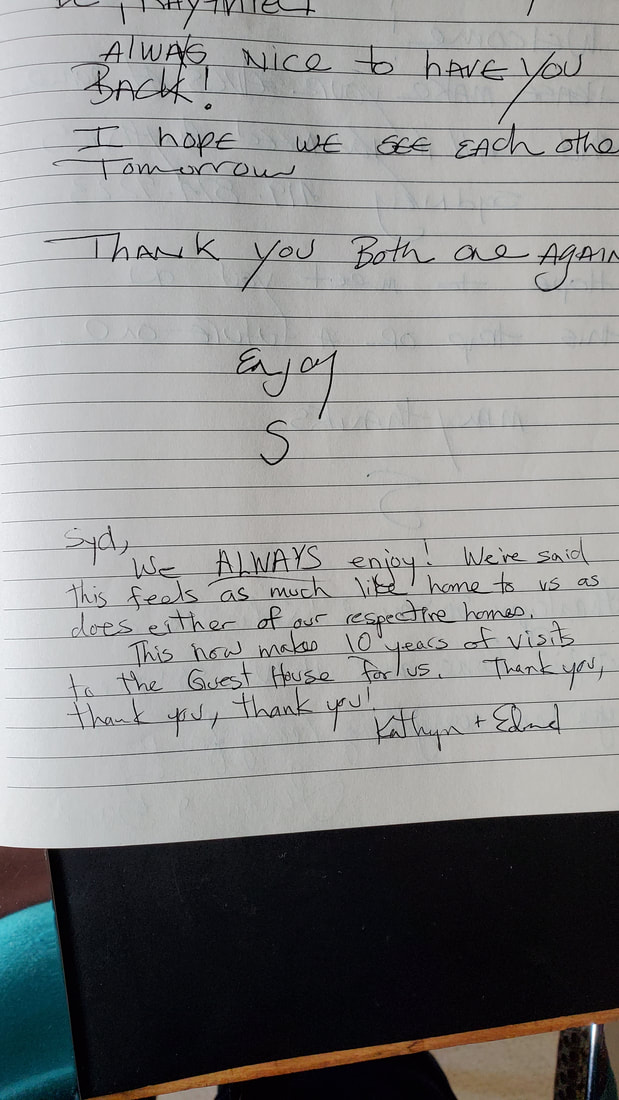 ALWAYS NICE to HAVE YOU
BACK!
I HOPE WE SEE EACH othe
Tomorrow
THANK YOU Both one AGAIN
Enjoy
S
Syd,
We ALWAYS enjoy! We've said
this feels as much like home to us as
does either of our respective homes.
This now makes 10 years of visits
to the Guest House for us. Thank you,
thank you, thank you!
Kathyn + Edmd